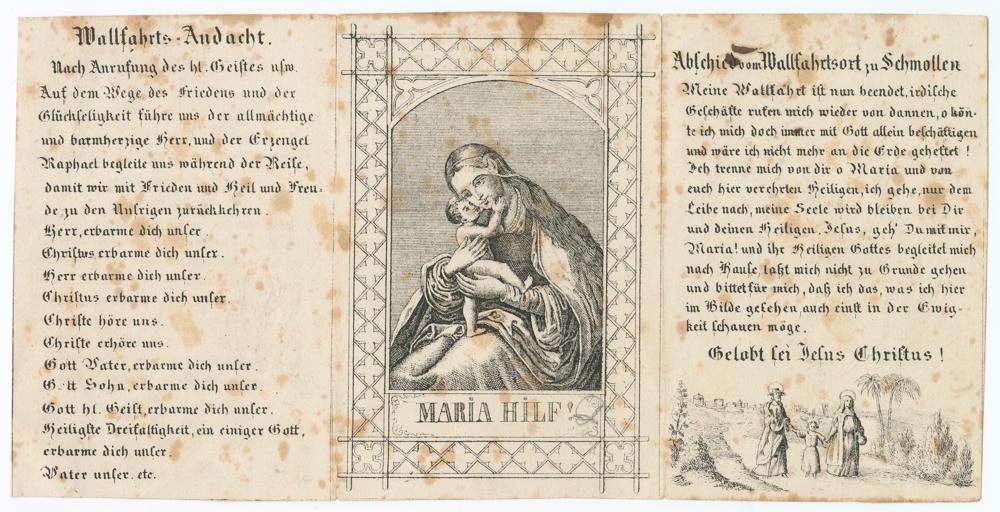 Wallfahrts-Andacht.
Nach Anrufung des hl. Geistes usw.
Auf dem Wege des Friedens und der
Glückseligkeit führe uns der allmächtige
und barmherzige Herr, und der Erzengel
Raphael begleite uns während der Reise,
damit wir mit Frieden und Heil und Freu-
de zu den Unsrigen zurückkehren.
Herr, erbarme dich unser.
Christus, erbarme dich unser.
Herr erbarme dich unser.
Christus erbarme dich unser.
Christe höre uns.
Christe erhöre uns.
Gott Vater, erbarme dich unser.
Gott Sohn, erbarme dich unser.
Gott hl. Geist, erbarme dich unser.
Heiligste Dreifaltigkeit, ein einiger Gott,
erbarme dich unser.
Vater unser. etc.
MARIA HILF!
Abschied vom Wallfahrtsort zu Schmollen
Meine Wallfahrt ist nun beendet, irdische
Geschäfte rufen mich wieder von dannen, o kön-
te ich mich doch immer mit Gott allein beschäftigen
und wäre ich nicht mehr an die Erde geheftet!
Ich trenne mich von dir o Maria und von
euch hier verehrten Heiligen, ich gehe, nur dem
Leibe nach, meine Seele wird bleiben bei Dir
und deinen Heiligen. Jesus, geh' Du mit mir,
Maria! und ihr Heiligen Gottes begleitet mich
nach Hause, laßt mich nicht zu Grunde gehen
und bittet für mich, daß ich das, was ich hier
im Bilde gesehen, auch einst in der Ewig-
keit schauen möge.
Gelobt sei Jesus Christus!